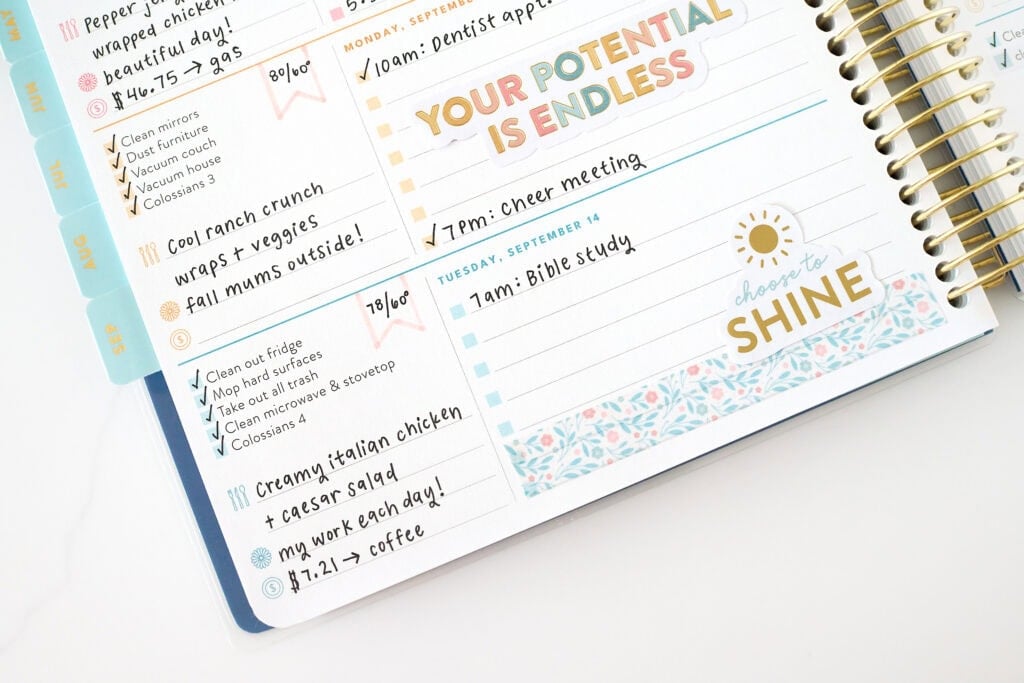 MAY
JUN
JUL
AUG
SEP
Pepper
wrapped chicken
beautiful day!
$46.75 → gas
80/60°
✓ Clean mirrors
✓ Dust furniture
✓ Vacuum couch
✓ Vacuum house
✓ Colossians 3
cool ranch crunch
wraps + veggies
fall mums outside!
MONDAY, SEPTEMBER
✓ 10am: Dentist appt.
YOUR POTENTIAL
IS ENDLESS
✓ 7pm: Cheer meeting
78/60°
✓ Clean out fridge
✓ Mop hard surfaces
✓ Take out all trash
✓ Clean microwave & stovetop
✓ Colossians 4
creamy italian chicken
+ caesar salad
my work each day!
$7.21 → coffee
TUESDAY, SEPTEMBER 14
7am: Bible study
choose to
SHINE